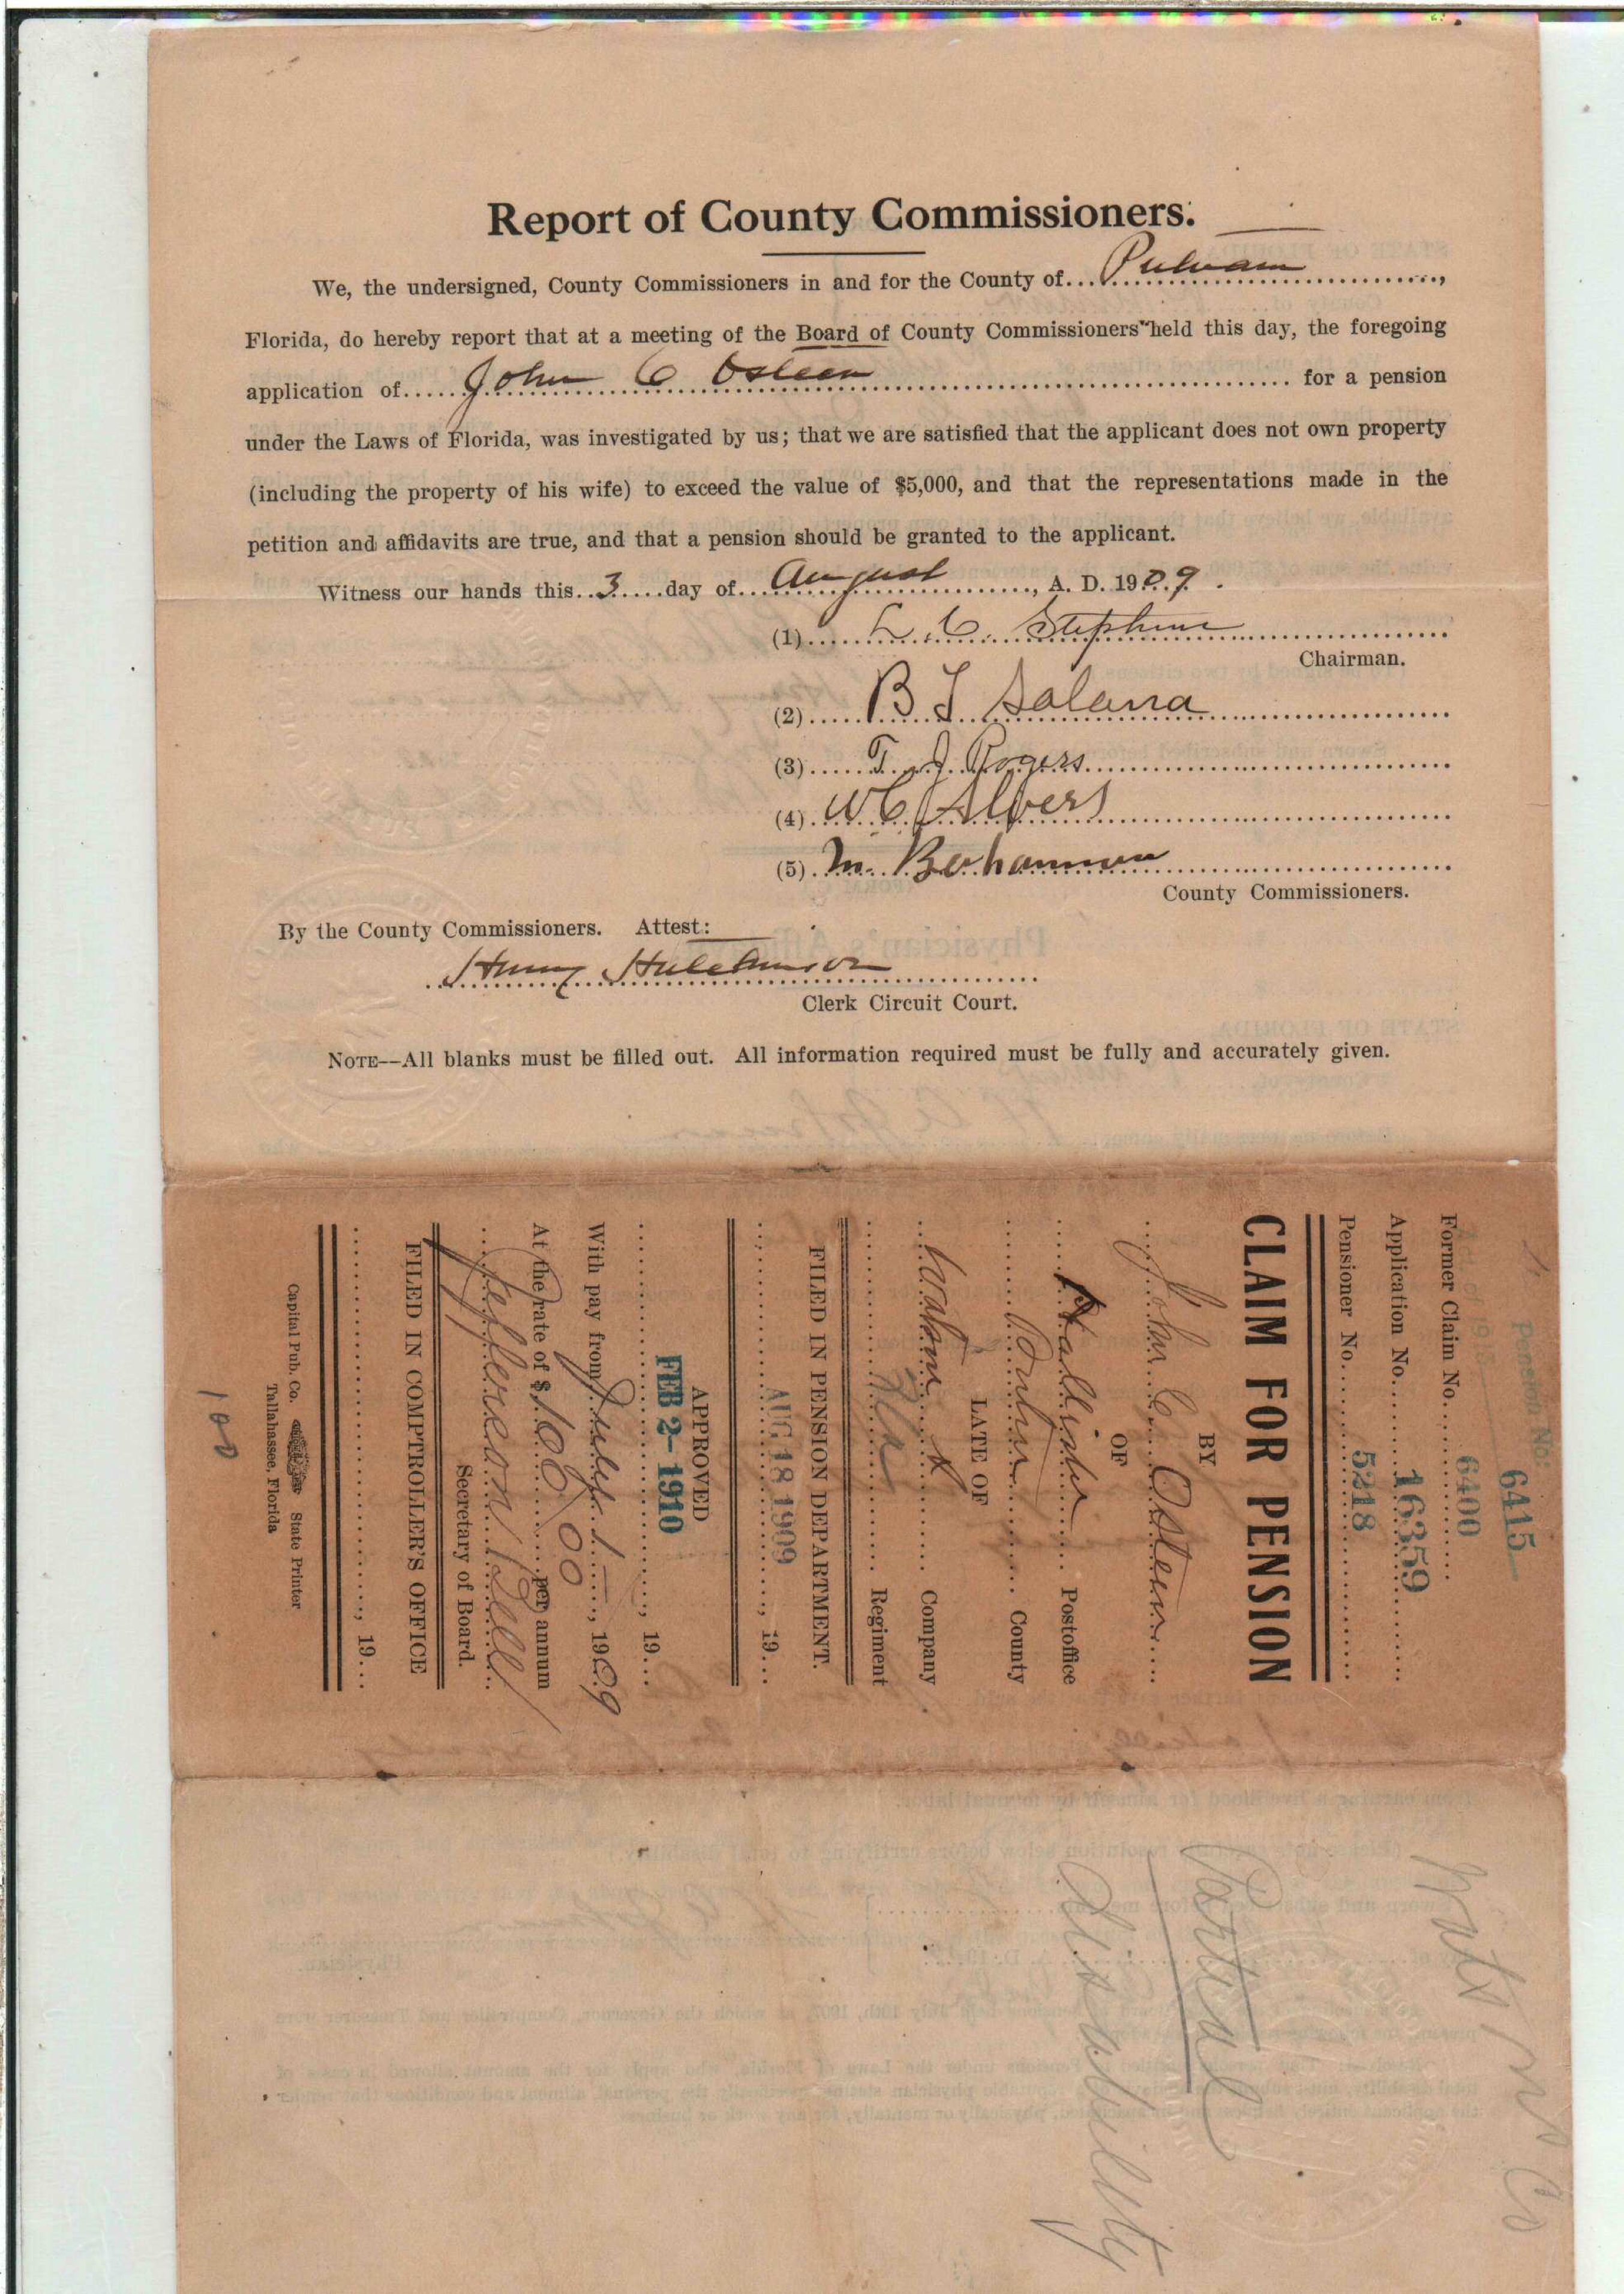 Report of County Commissioners.
We, the undersigned, County Commissioners in and for the County of Putnam,
Florida, do hereby report that at a meeting of the Board of County Commissioners held this day, the foregoing
application of John C Osteen for a pension
under the Laws of Florida, was investigated by us; that we are satisfied that the applicant does not own property
(including the property of his wife) to exceed the value of $5,000, and that the representations made in the
petition and affidavits are true, and that a pension should be granted to the applicant.
Witness our hands this 3 day of August, A. D. 1909.
(1) L. C. Stephens
Chairman.
(2) B J Solana
(3) T. J. Rogers
(4) W C Alvers
(5) M. Bohannon
County Commissioners.
By the County Commissioners. Attest:
Henry Hutchinson
Clerk Circuit Court.
NOTE--All blanks must be filled out. All information required must be fully and accurately given.
Pension No. 6415
Former Claim No. 6400
Application No. 16359
Pensioner No. 5218
CLAIM FOR PENSION
BY
John C Osteen
OF
Postoffice
Putnam County
LATE OF
Company
Fla Regiment
FILED IN PENSION DEPARTMENT.
AUG 18 1909, 19
APPROVED
FEB 2- 1910, 19
With pay from July 1, 1909
At the rate of $100 00 per annum
Jefferson Bell
Secretary of Board.
FILED IN COMPTROLLER'S OFFICE
, 19
Capital Pub. Co. State Printer
Tallahassee, Florida
100
Partial
Disability